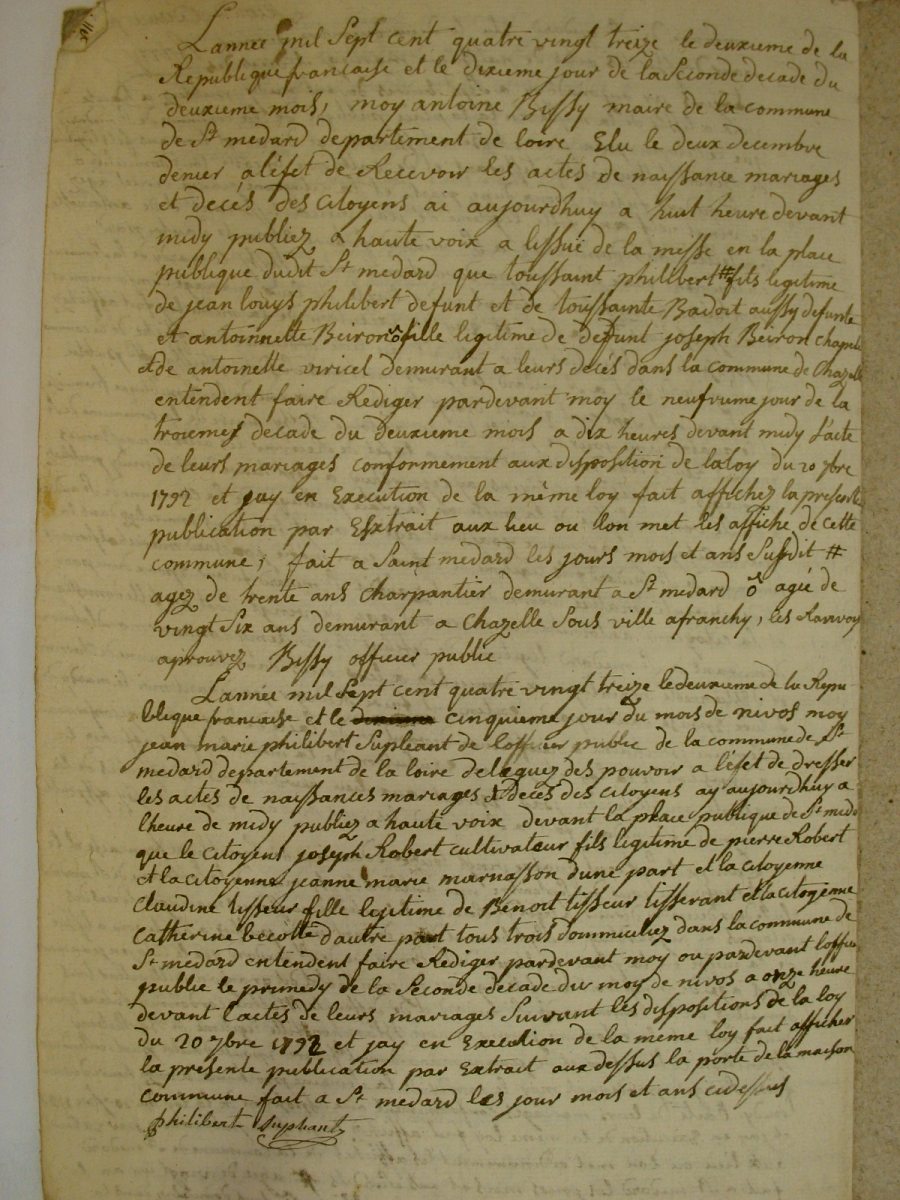 Lannee mil Sept cent quatre vingt treize le deuxieme de la
Republique francaise et le dixieme jour de la Seconde decade du
deuxieme mois, moy antoine Bissy maire de la commune
de St medard departement de loire Elu le deux decembre
denier a léfet de Recevoir les actes de naissance mariages
et decés des citoyens ai aujourdhuy a huit heure devant
midy publiez a haute voix a lissüe de la messe en la place
publique dudit St medard que toussaint philibert # fils legitime
de jean louys philibert defunt et de toussainte Badoit aussy defunte
et antoinette Beiron ô fille legitime de defunt joseph Beiron chapel
& de antoinette viricel demurant a leurs decés dans la commune de Chazelle
entendent faire Rediger pardevant moy le neufvieme jour de la
troieme decade du deuxieme mois a dix heures devant midy l'acte
de leurs mariages conformement aux disposition de la loy du 20 7bre
1792 et jay en Execution de la même loy fait affichez la presente
publication par Extrait aux lieu ou lon met les affiche de cette
commune, fait a Saint medard les jours mois et ans Susdit #
agez de trente ans charpantier demurant a St medard ô agée de
vingt Six ans demurant a Chazelle Sous ville afranchy, les Ranvoy
aprouvez Bissy officier public
Lannée mil Sept cent quatre vingt treize le deuxieme de la Repu-
blique francaise et le cinquieme jour du mois de nivos moy
jean marie philibert Supleant de lofficier public de la commune de St
medard departement de la loire deleguez des pouvoir a léfet de dresser
les actes de naissances mariages & decés des citoyens ay aujourdhuy a
lheure de midy publiez a haute voix devant la place publique de St meda
que le citoyens joseph Robert cultivateur fils legitime de pierre Robert
et la citoyenne jeanne marie murnasson dune part et la citoyenne
Claudine tisseur fille lejitime de Benoit tisseur tisserant et la citoyenne
Catherine becotte d'autre part tous trois dommiciliez dans la commune de
St medard entendent faire Rediger pardevant moy ou pardevant lofficier
public le primedy de la Seconde decade du moy de nivos a onze heure
devant lactes de leurs mariages Suivant les dispositions de la loy
du 20 7bre 1792 et jay en Execution de la meme loy fait afficher
la présente publication par Extrait aux dessus la porte de la maison
commune fait a St medard les jour mois et ans cidessus
philibert Supleant